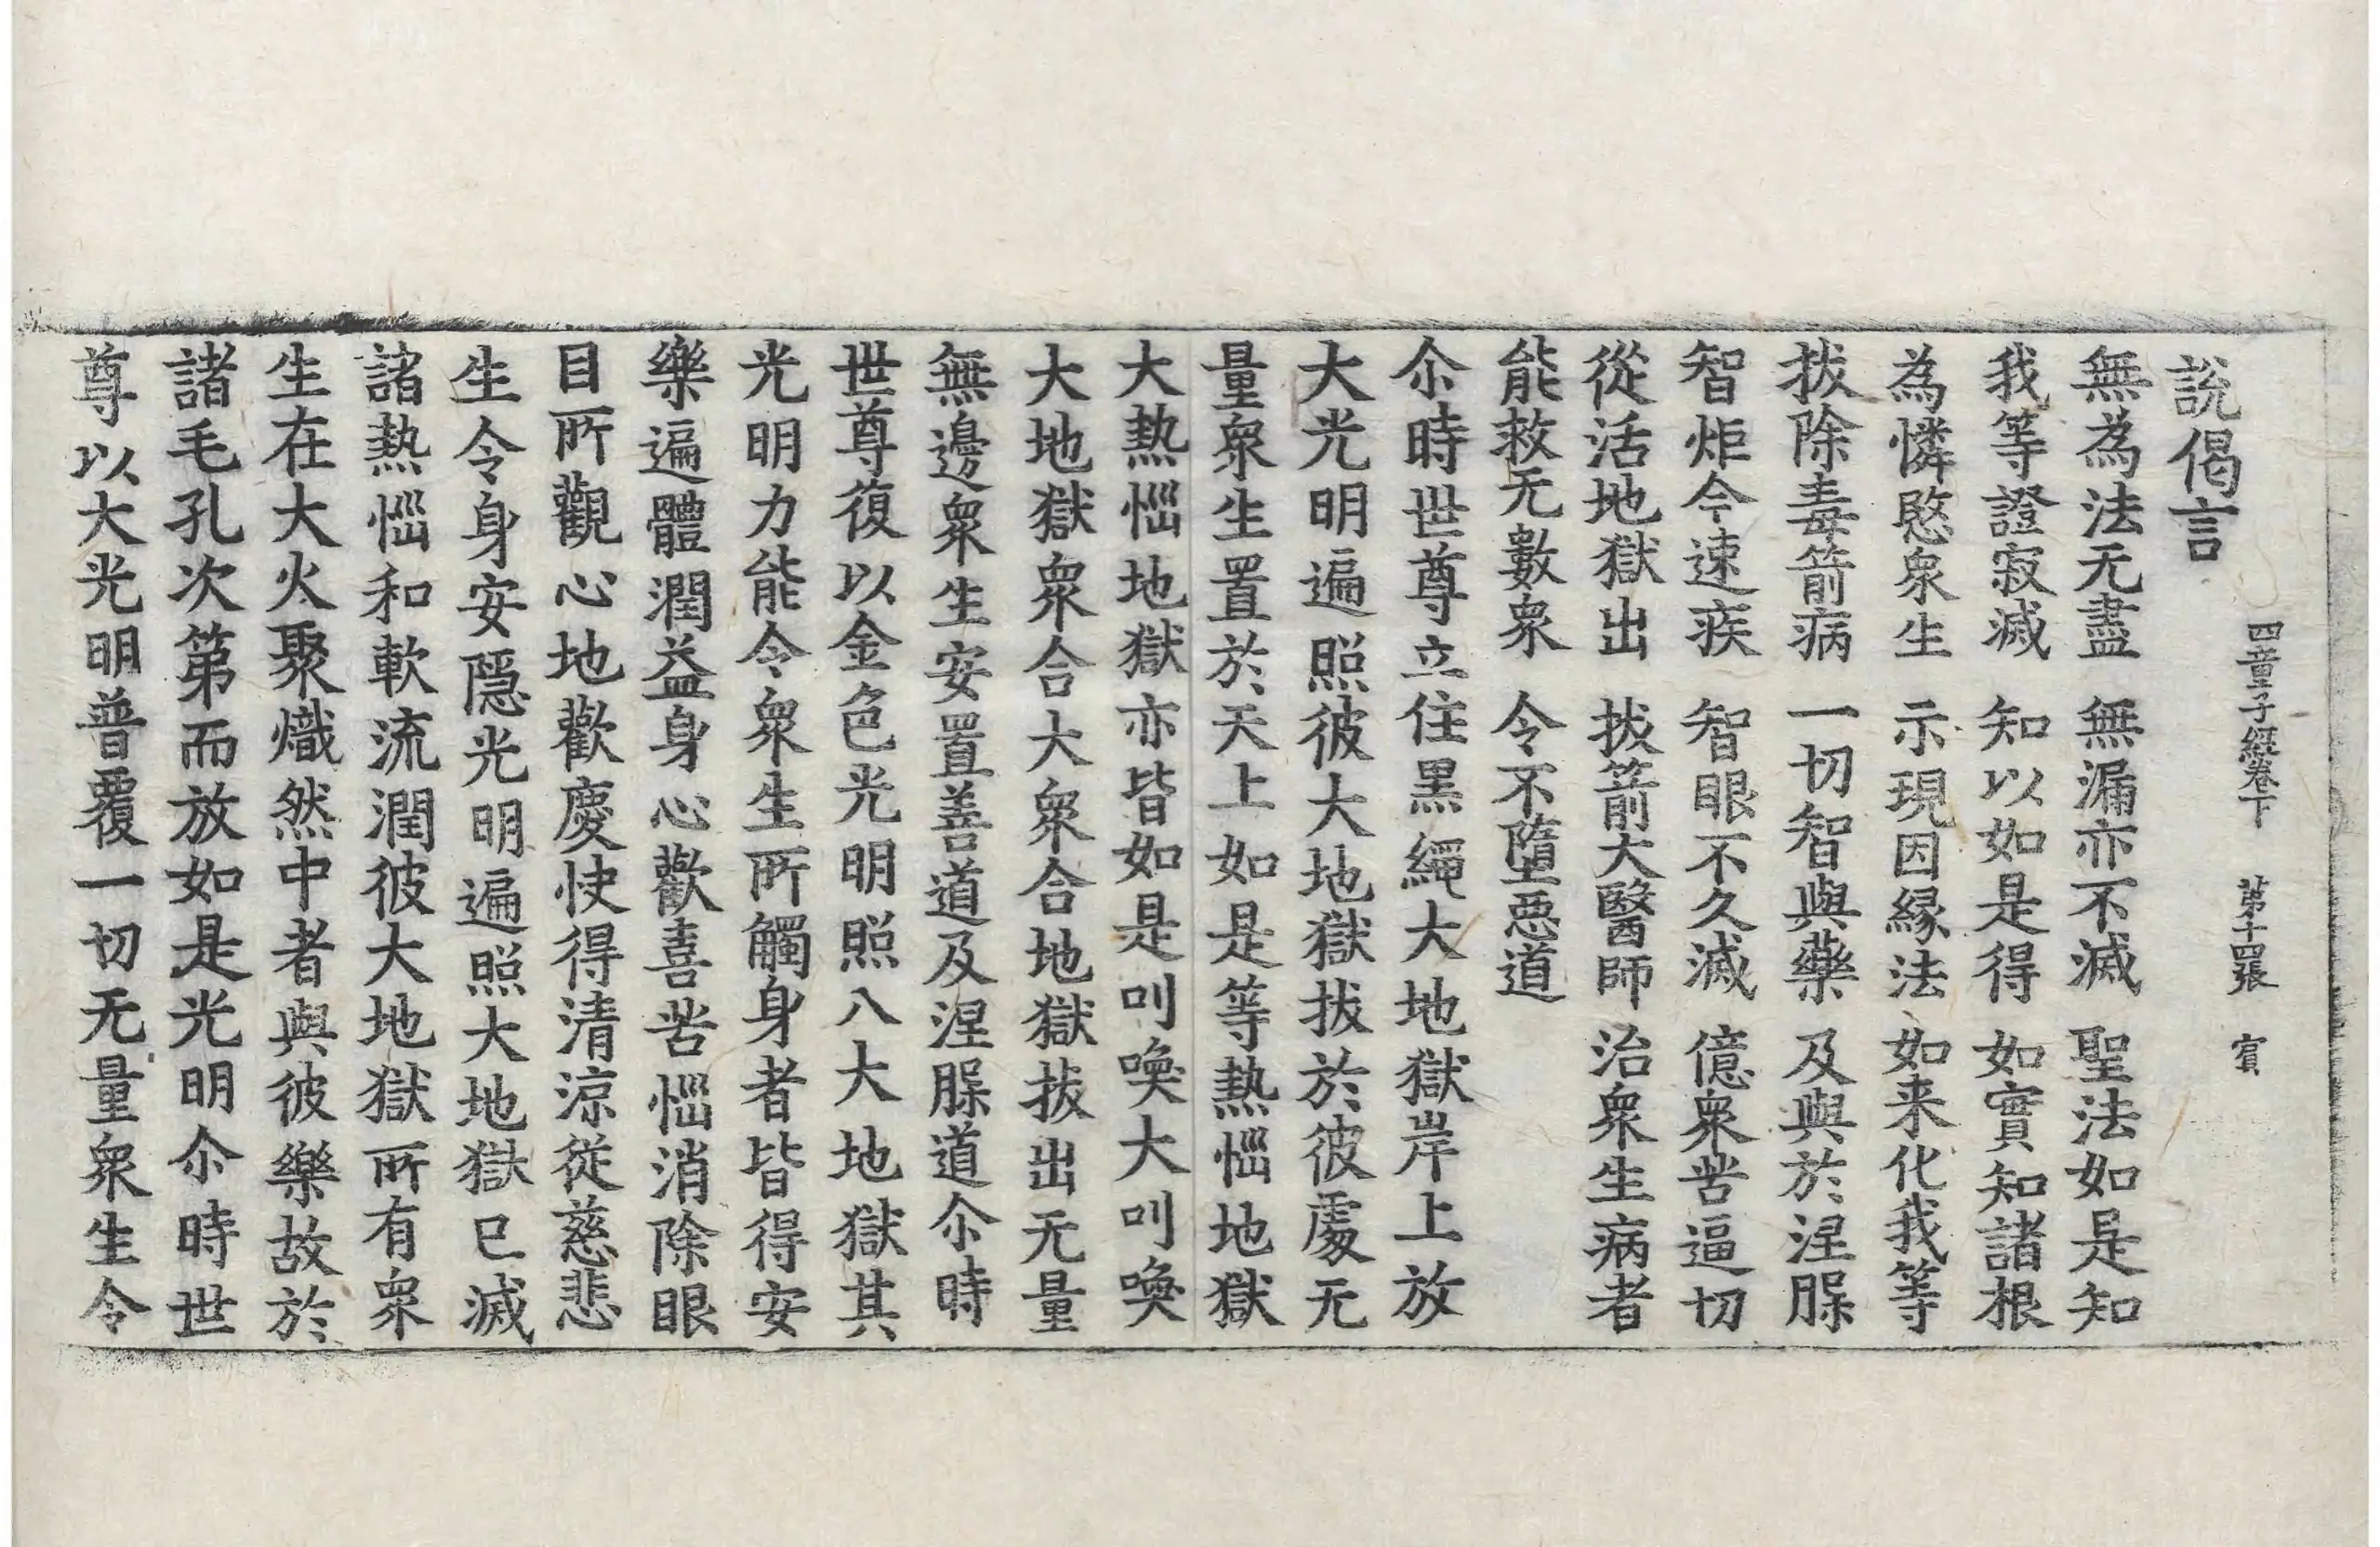 四童子經卷下 第十四張 賓
說偈言
無為法无盡 無漏亦不滅 聖法如是知
我等證寂滅 知以如是得 如實知諸根
為憐愍衆生 示現因緣法 如来化我等
拔除毒箭病 一切智與藥 及與於涅槃
智炬令速疾 智眼不久滅 億衆苦逼切
從活地獄出 拔箭大醫師 治衆生病者
能救无數衆 令不墮惡道
尒時世尊立住黑繩大地獄岸上放
大光明遍照彼大地獄拔於彼處无
量衆生置於天上如是等熱惱地獄
大熱惱地獄亦皆如是叫喚大叫喚
大地獄衆合大衆合地獄拔出无量
無邊衆生安置善道及涅槃道尒時
世尊復以金色光明照八大地獄其
光明力能令衆生所觸身者皆得安
樂遍體潤益身心歡喜苦惱消除眼
目所觀心地歡慶快得清涼從慈悲
生令身安隱光明遍照大地獄已滅
諸熱惱和軟流潤彼大地獄所有衆
生在大火聚熾然中者與彼樂故於
諸毛孔次第而放如是光明尒時世
尊以大光明普覆一切无量衆生令